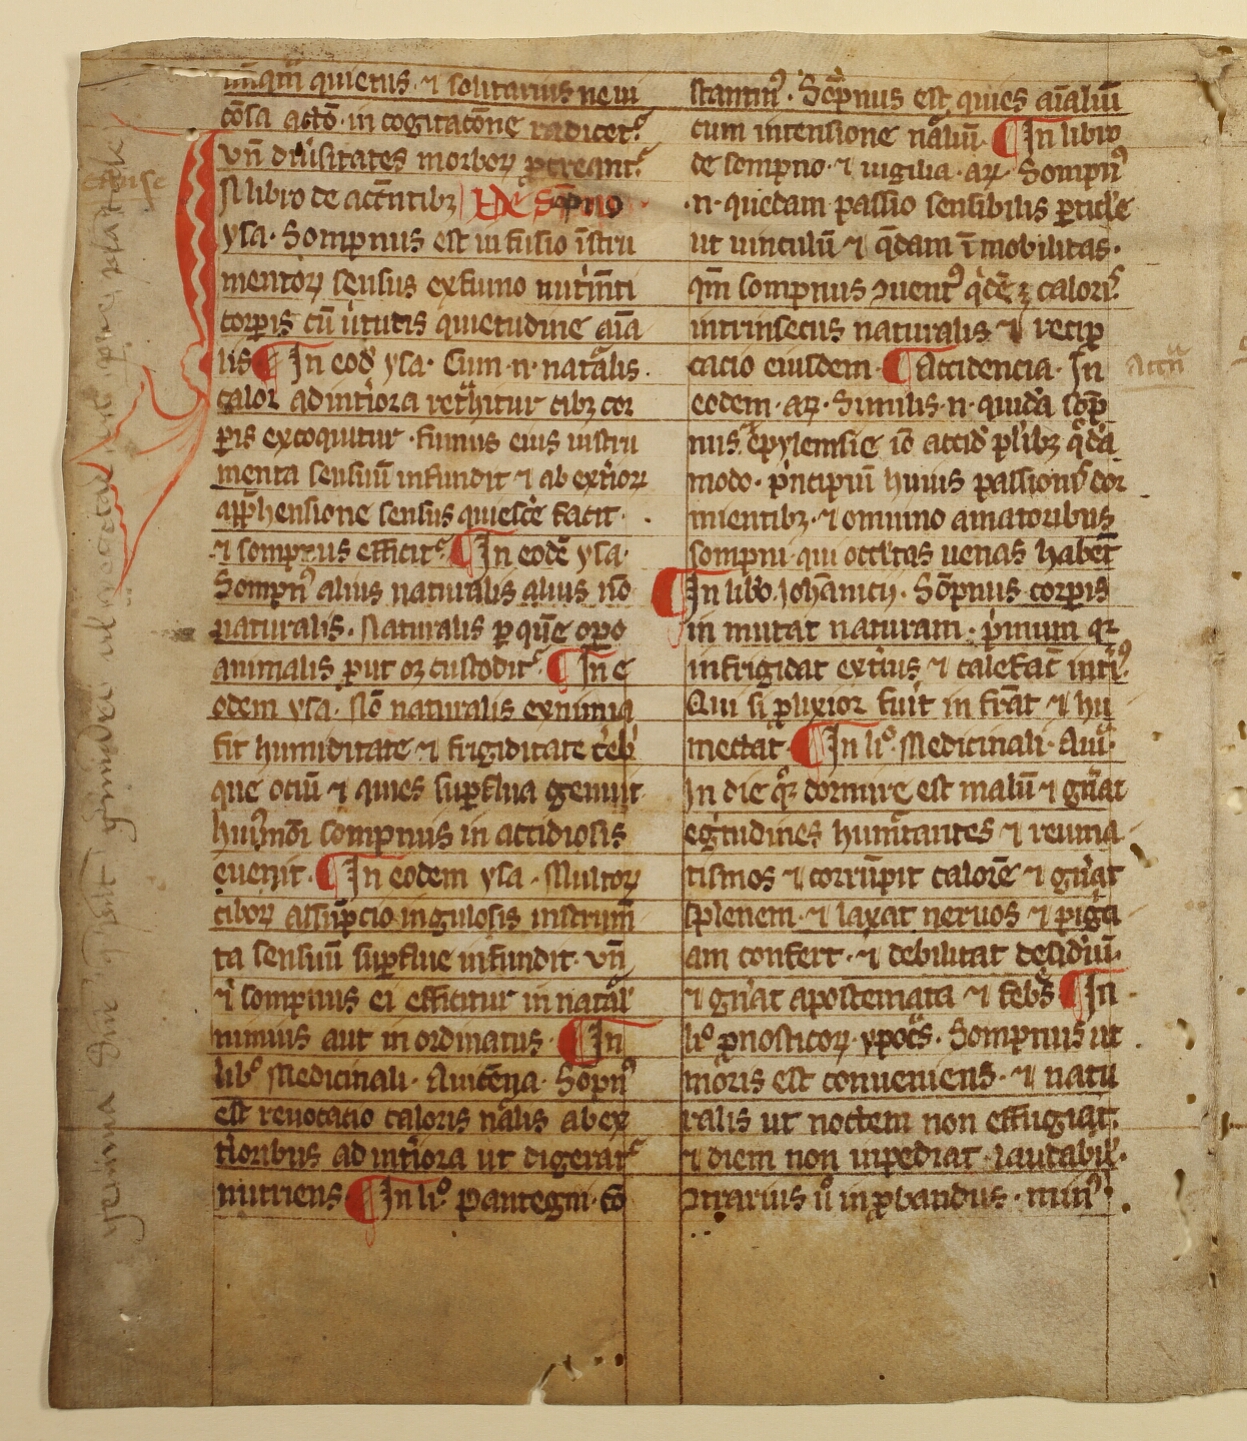 nūqm̄ quietus ⁊ solitarius ne in
cōsa actō · in cogitacōne radicet᷑
vn̄ diūsitates morboꝝ ꝓcreant᷑
N libro de accn̄tibꝫ De Sōpno
ysa · Sompnus est infusio īstru
mentoꝝ sensus ex fumo nutͥm̄ti
corꝑis cū ùtutis quietudine aīa
lis ¶ In eod̄ ysa · Cum · n · natᵃlis ·
calor ad intͥora retᵃhitur cibꝫ cor
ꝑis excoquitur · fumus eius instru
menta sensuū infundit ⁊ ab extͥoꝝ
app̄hensione sensus quiesc̄e facit ·
⁊ sompnus efficit᷑ ¶ In eodē ysa ·
Sompnꝰ alius naturalis alius nō
naturalis · Naturalis ꝑ quē oꝑo
animalis put oꝫ custodit᷑ ¶ In e
odem ysa · Nō naturalis ex nimia
fit humiditate ⁊ frigiditate cͤebͥ
que ociū ⁊ quies suꝑflua genuit
huiꝰmōi sompnus in accidiosis
euenit · ¶ In eodem ysa · Multoꝝ
ciboꝝ assūpcio in gulosis instrum̄
ta sensuū suꝑflue infundit · vn̄
⁊ sompnus ei efficitur in natᵃl
nimius aut in ordinatus · ¶ In
libº Medicinali · Auicēna · Sopnꝰ
est reuocatio caloris nālis ab ex
tͥoribus ad intͥora ut digerat᷑
nutriens ¶ In liº pantegni · cō
stantinꝰ · Sōpnus est quies aīaliū
cum intensione nāliū · ¶ In libro
de sompno · ⁊ uigilia · arꝫ · Sompnꝰ
· n · quedam passio sensibilis ꝑticl̄e
ut uinculū ⁊ q̄dam ī mobilitas ·
qm̄ sompnus ꝯuentꝰ
intrinsecus naturalis ⁊ recip
cacio eiusdem · ¶ Accidencia · In
eodem · arꝫ · Similis · n · quidā sōp
nus epylemsie iō accid̄ pl̄ibꝫ q̄dā
modo · pͥncipiū huius passionis dor
mientibꝫ · ⁊ omnino amatoribus
sompni · qui occl̄tas uenas habēt
¶ In libº · Johānicij · Sōpnus corꝑis
in mutat naturam · pͥmum qꝛ
infrigidat extͥus ⁊ calefac̄ intͥꝰ
Qui si ꝓlixior fuit infrͣat ⁊ hu
mectat · ¶ In liº · Medicinali · Aui ·
In die qꝫ dormire est malū ⁊ gn̄at
egͥtudines humͥtantes ⁊ reuma
tismos ⁊ corrūpit calorē ⁊ gn̄at
splenem · ⁊ laxat neruos ⁊ pigͥci
am confert · ⁊ debilitat desid̄iū ·
⁊ gn̄at apostemata ⁊ febͤs ¶ In
liº ꝓnosticoꝝ · ypocͣs · Sompnus ut
moris est conueniens · ⁊ natu
ralis ut noctem non effugiat ·
⁊ diem non inpediat · laudabil̄ ·
ꝯtrarius ùo inꝓbandus · minꝰ